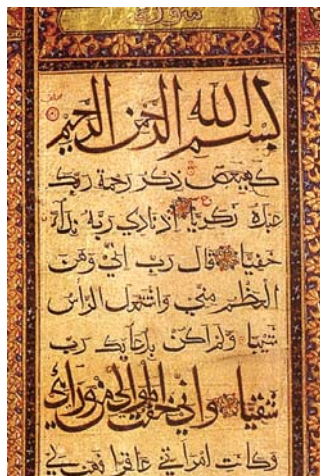 بسم الله الرحمن الرحيم
كهيعص ذكر رحمة ربك
عبده زكريا اذ نادي ربه نداء
خفيا قال رب اني وهن
العظم مني واشتعل الرأس
شيبا ولم اكن بدعايك رب
شقيا واني خفت الموالي من ورائي
وكانت امراتي عاقرا فهب لي